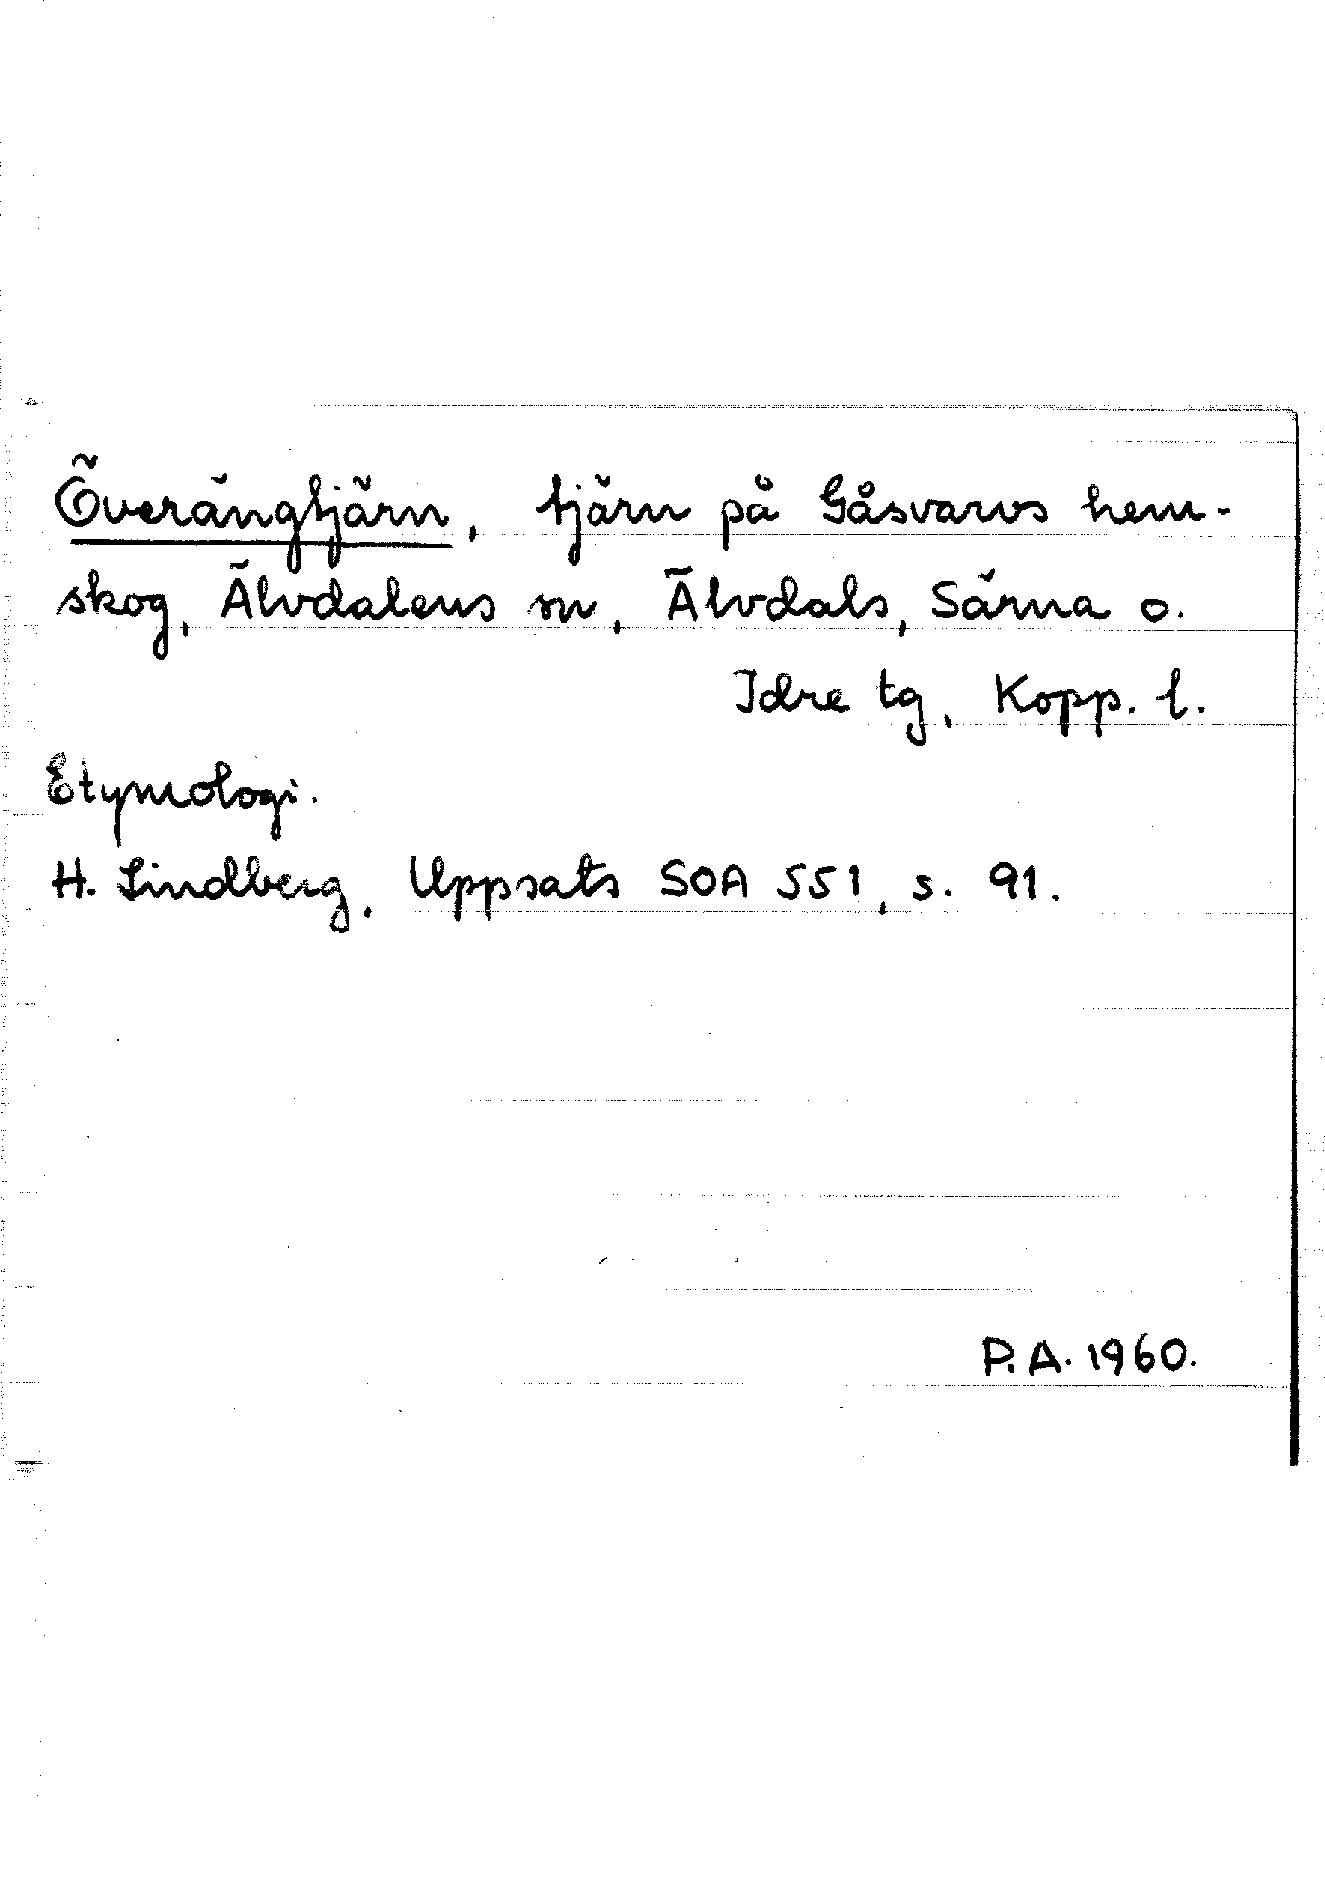 Överängtjärn, tjärn på Gåsvarvs hem-
skog, Älvdalens sn, Älvdals, Särna o.
Idre tg, Kopp. l.
Etymologi.
H. Lindberg, Uppsats SOA 551, s. 91.
P.A. 1960.